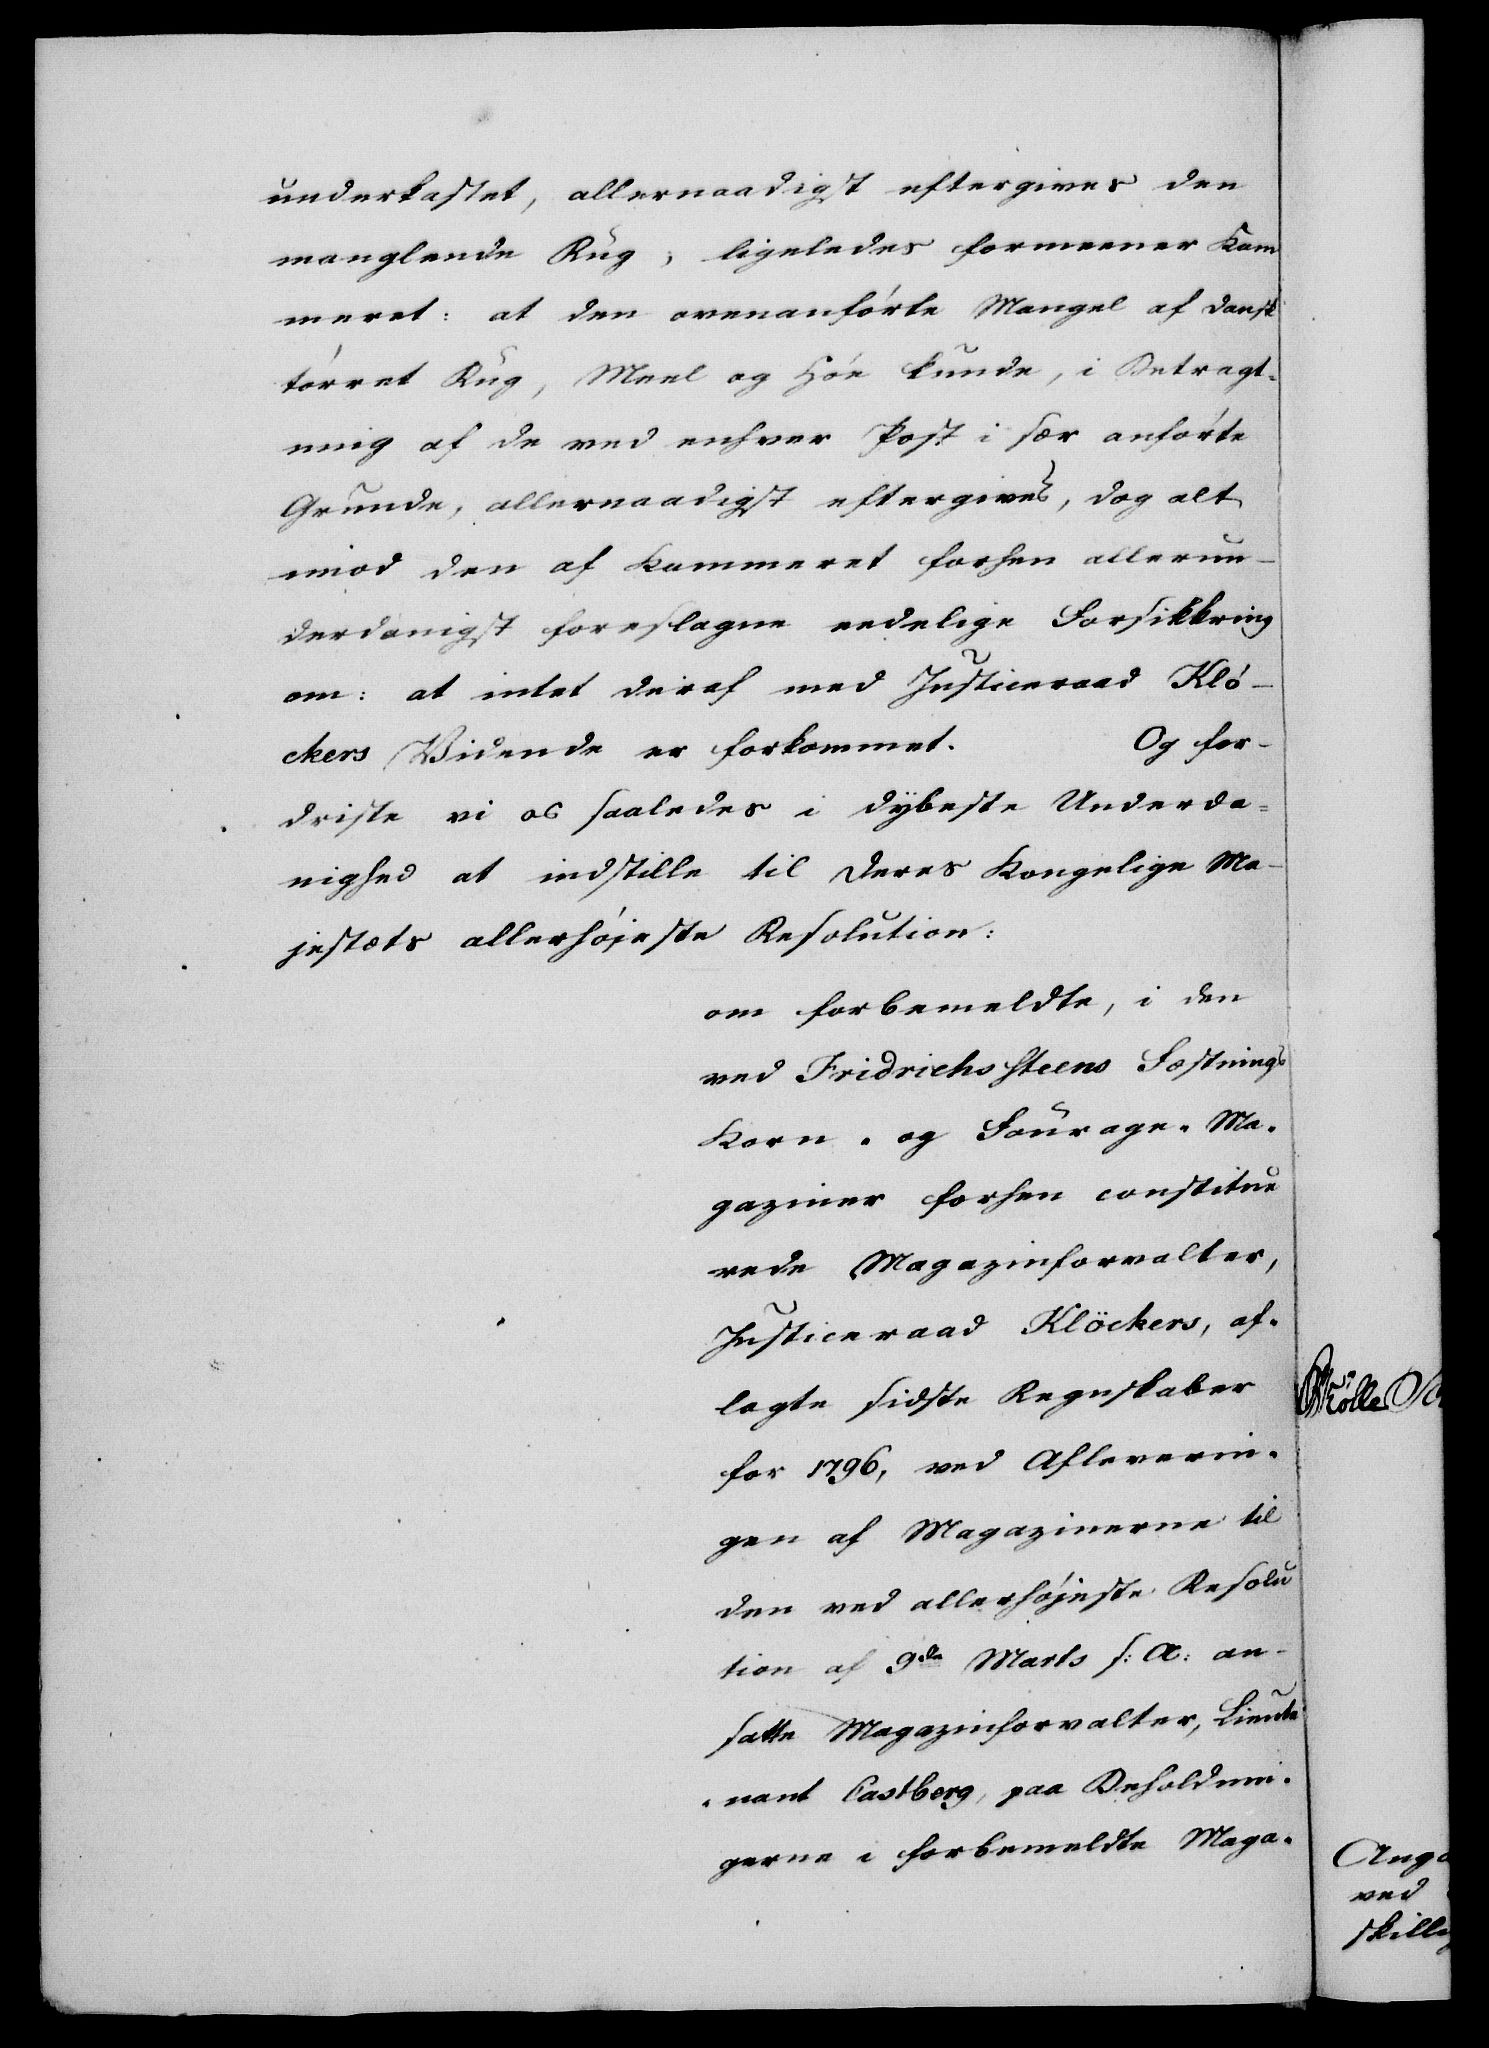 underkastet, allernaadigst eftergives den
manglende Rug; ligeledes formeener Kam
meret: at den ovenanførte Mangel af dansk
tørret Rug, Meel og Høe kunde, i Betragt-
ning af de ved enhver Post i sær anførte
Grunde, allernaadigst eftergives, dog alt
imod den af Kammeret forhen allerun-
derdanigst foreslagne eedelige Forsikkring
om: at intet deraf med Justiceraad Klö-
ckers Vidende er forkommet. Og for-
driste vi os saaledes i dybeste Underda-
nighed at indstille til Deres Kongelige Ma-
jestæts allerhøjeste Resolution:
om forbemeldte, i den
ved Fridrichssteens Fæstnings
Korn- og Fourage-Ma-
gaziner forhen constitue
rede Magazinforvalter,
Justiceraad Klöckers, af-
lagte sidste Regnskaber
for 1796, ved Afleverin-
gen af Magazinerne til
den ved allerhøjeste Resolu
tion af 9de Marts s: A: an-
satte Magazinforvalter, Lieute
nant Castberg, paa Beholdnin-
gerne i forbemeldte Maga-
ved